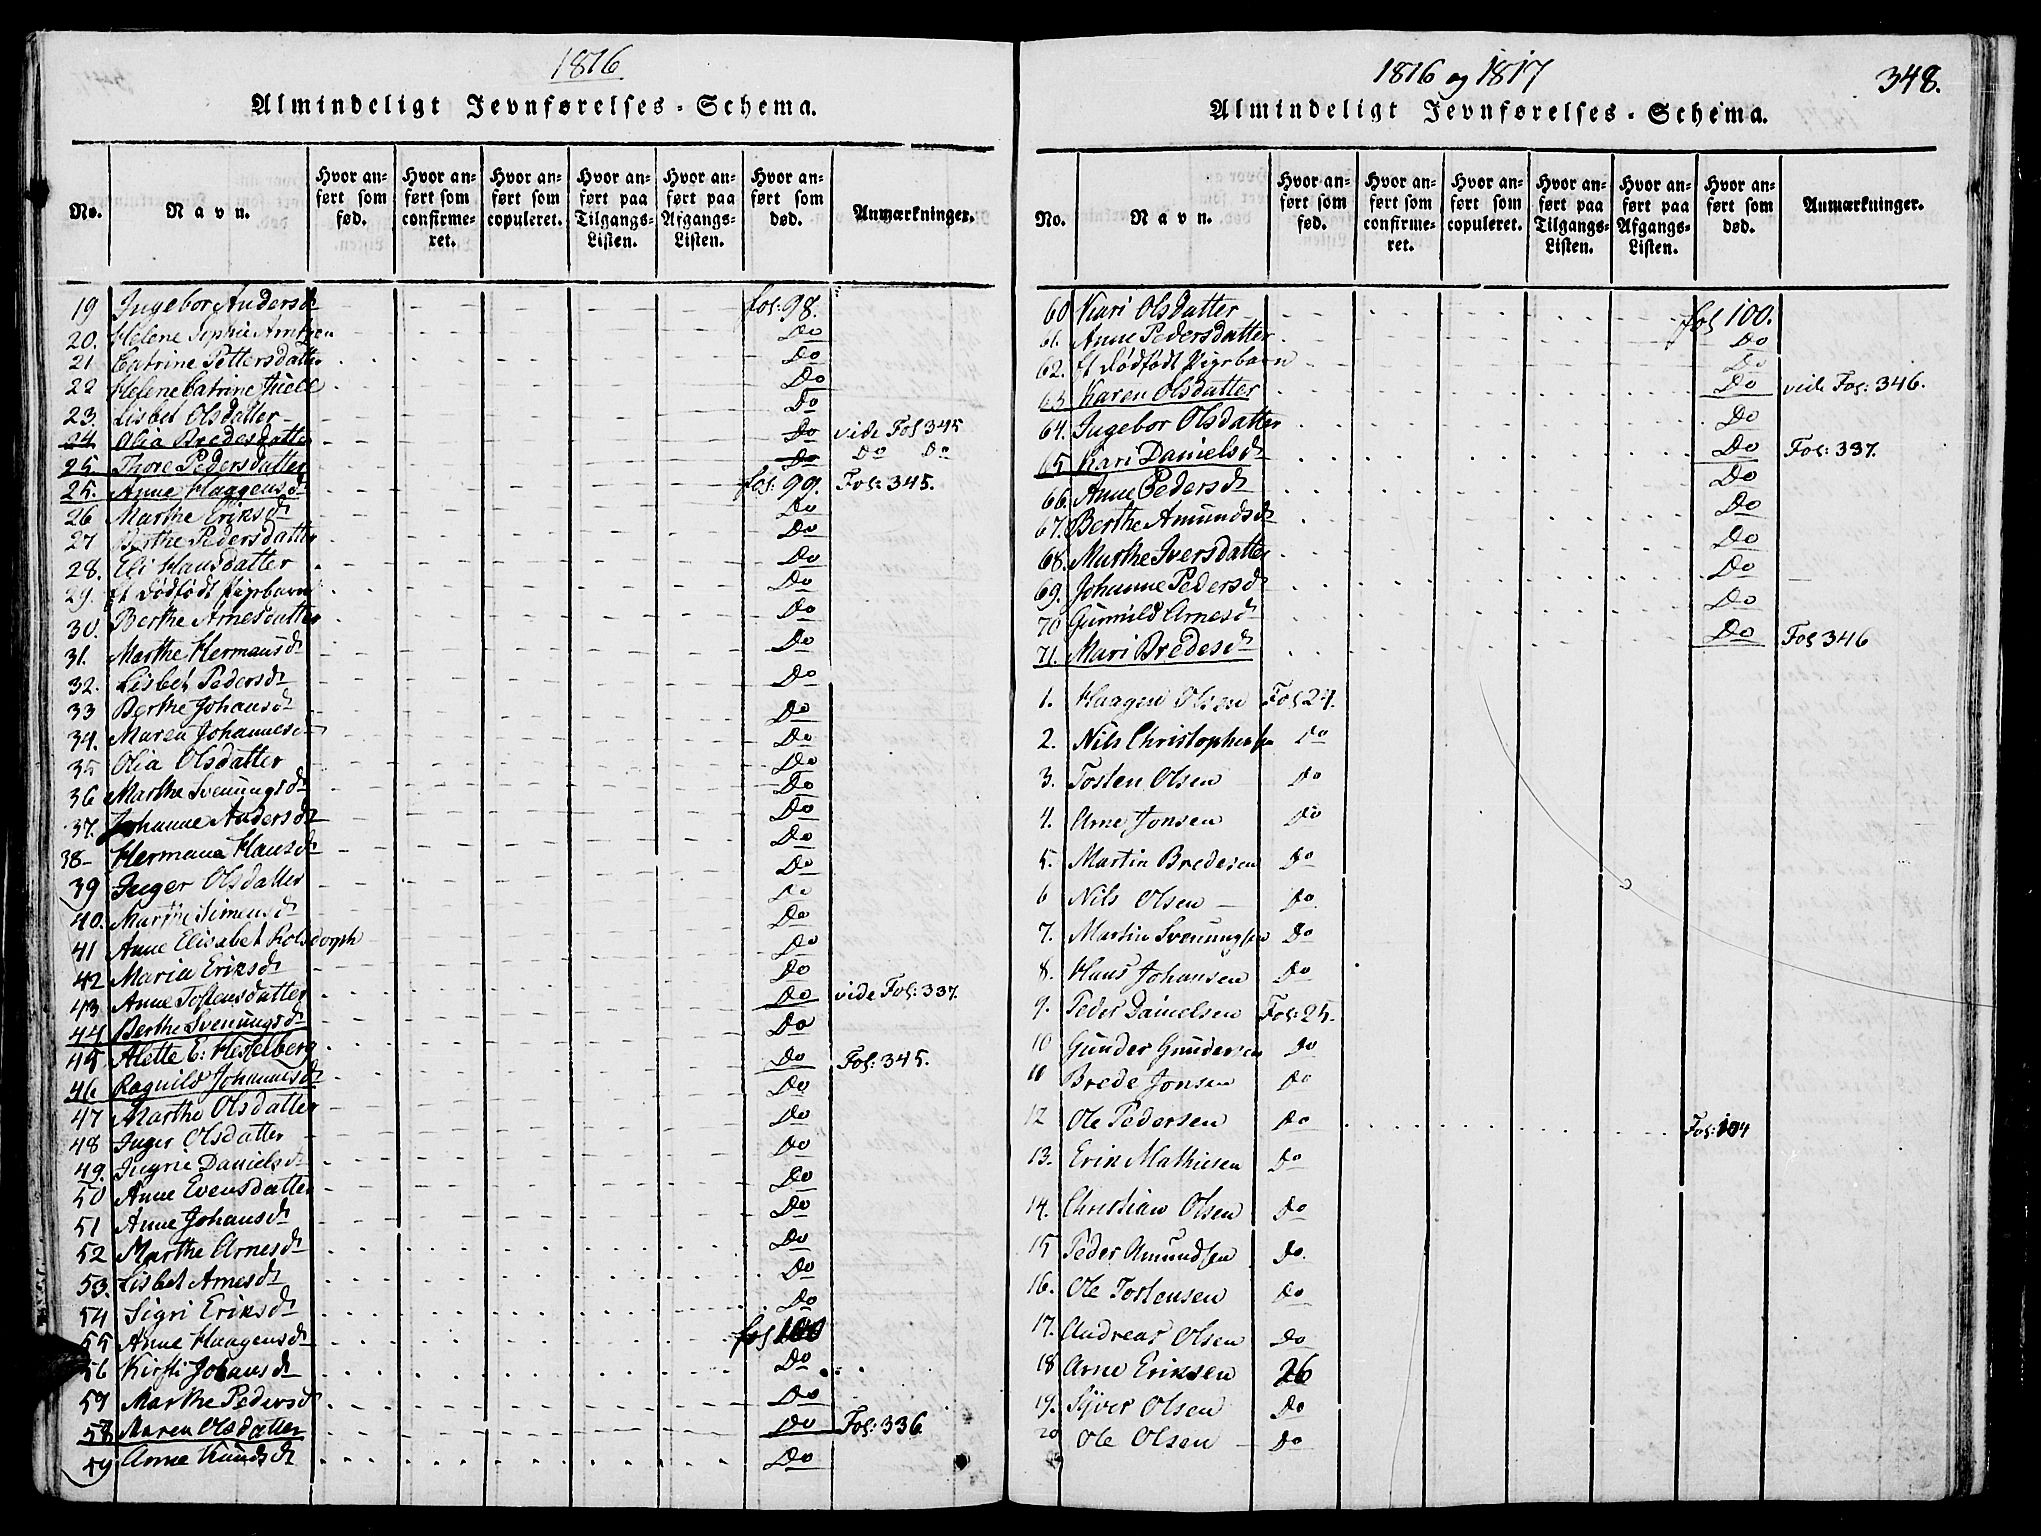 1816
Almindeligt Jevnførelses-Schema.
No.
Navn.
Hvor anført som fød.
Hvor anført som confirmeret.
Hvor anført som copuleret.
Hvor anført paa Tilgangs-Listen.
Hvor anført paa Afgangs-Listen.
Hvor anført som død.
Anmærkninger.
19 Ingebor Andersdr fol: 98.
20. Helene Sophie Arntzen Do
21 Catrine Pettersdatter Do
22 Helene Catrine Juell Do
23. Lisbet Olsdatter Do
24 Olia Bredesdatter Do vide Fol 345
25. Thore Pedersdatter Do Do Do
25. Anne Haagensdr fol: 99. Fol: 345.
26 Marthe Eriksdr Do
27 Berthe Pedersdatter Do
28. Eli Hansdatter Do
29. Et dødfødt Pigebarn Do
30. Berthe Arnesdatter Do
31. Marthe Hermansdr Do
32. Lisbet Pedersdr Do
33 Berthe Johansdr Do
34. Maren Johannesdr Do
35 Olia Olsdatter Do
36 Marthe Svenungsdr Do
37. Johanne Andersdr Do
38- Hermana Hansdr Do
39 Inger Olsdatter Do
40. Marthe Simensdr Do
41 Anne Elisabet Rolsdorph Do
42 Maria Eriksdr Do
43. Anne Tostensdatter Do
44 Berthe Svenungsdr Do vide Fol: 337.
45 Alette E: Hesselberg Do
46 Ragnild Johannesdr Do Fol: 345.
47 Marthe Olsdatter Do
48 Inger Olsdatter Do
49. Ingrie Danielsdr Do
50 Anne Evensdatter Do
51 Anne Johansdr Do
52 Marthe Arnesdr Do
53. Lisbet Arnesdr Do
54 Sigri Eriksdr Do
55 Anne Haagensdr fol 100
56 Kirsti Johansdr Do
57 Marthe Pedersdr Do
58 Maren Olsdatter Do Fol: 336
59 Anne Knudsdr Do
1816 og 1817
348.
Almindeligt Jevnførelses-Schema.
No.
Navn.
Hvor anført som fød.
Hvor anført som confirmeret.
Hvor anført som copuleret.
Hvor anført paa Tilgangs-Listen.
Hvor anført paa Afgangs-Listen.
Hvor anført som død.
Anmærkninger.
60 Kari Olsdatter fol 100.
61. Anne Pedersdatter Do
62. Et dødfødt Pigebarn Do
63 Karen Olsdatter Do vide Fol: 346.
64. Ingebor Olsdatter Do
65 Kari Danielsdr Do Fol: 337.
66. Anne Pedersdr Do
67. Berthe Amundsdr Do
68. Marthe Iversdatter Do
69. Johanne Pedersdr Do
70 Gunnild Arnesdr Do
71. Mari Bredesdr Do Fol 346
1. Haagen Olsen Fol 24.
2. Nils Christophersen Do
3. Tosten Olsen Do
4. Arne Jonsen Do
5. Martin Bredesen Do
6 Nils Olsen - Do
7. Martin Svenungsen Do
8. Hans Johansen Do
9. Peder Danielsen Fol: 25.
10 Gunder Gundersen Do
11 Brede Jonsen Do
12 Ole Pedersen Do Fol: 104
13. Erik Mathiesen Do
14. Christian Olsen Do
15 Peder Amundsen Do.
16. Ole Tostensen Do
17. Andreas Olsen Do
18 Arne Eriksen 26
19. Syver Olsen Do
20 Ole Olsen - Do